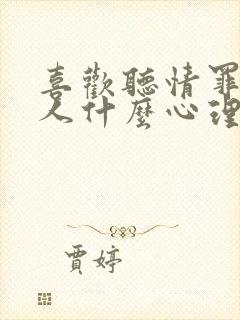 喜歡聽情罪
人什麼心理
賈婷